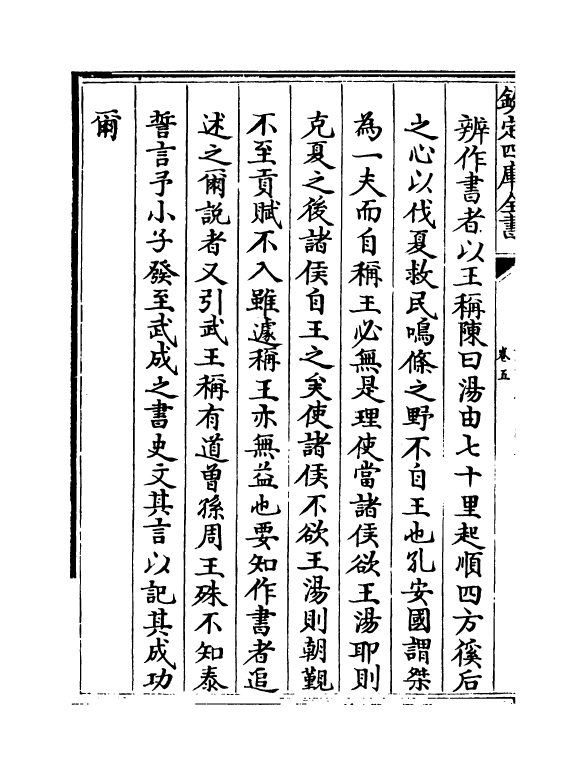 欽定四庫全書
卷五
辨作書者以王稱陳曰湯由七十里起順四方徯后
之心以伐夏救民鳴條之野不自王也孔安國謂桀
為一夫而自稱王必無是理使當諸侯欲王湯耶則
克夏之後諸侯自王之矣使諸侯不欲王湯則朝覲
不至貢賦不入雖遽稱王亦無益也要知作書者追
述之爾説者又引武王稱有道曾孫周王殊不知泰
誓言予小子發至武成之書史文其言以記其成功
爾